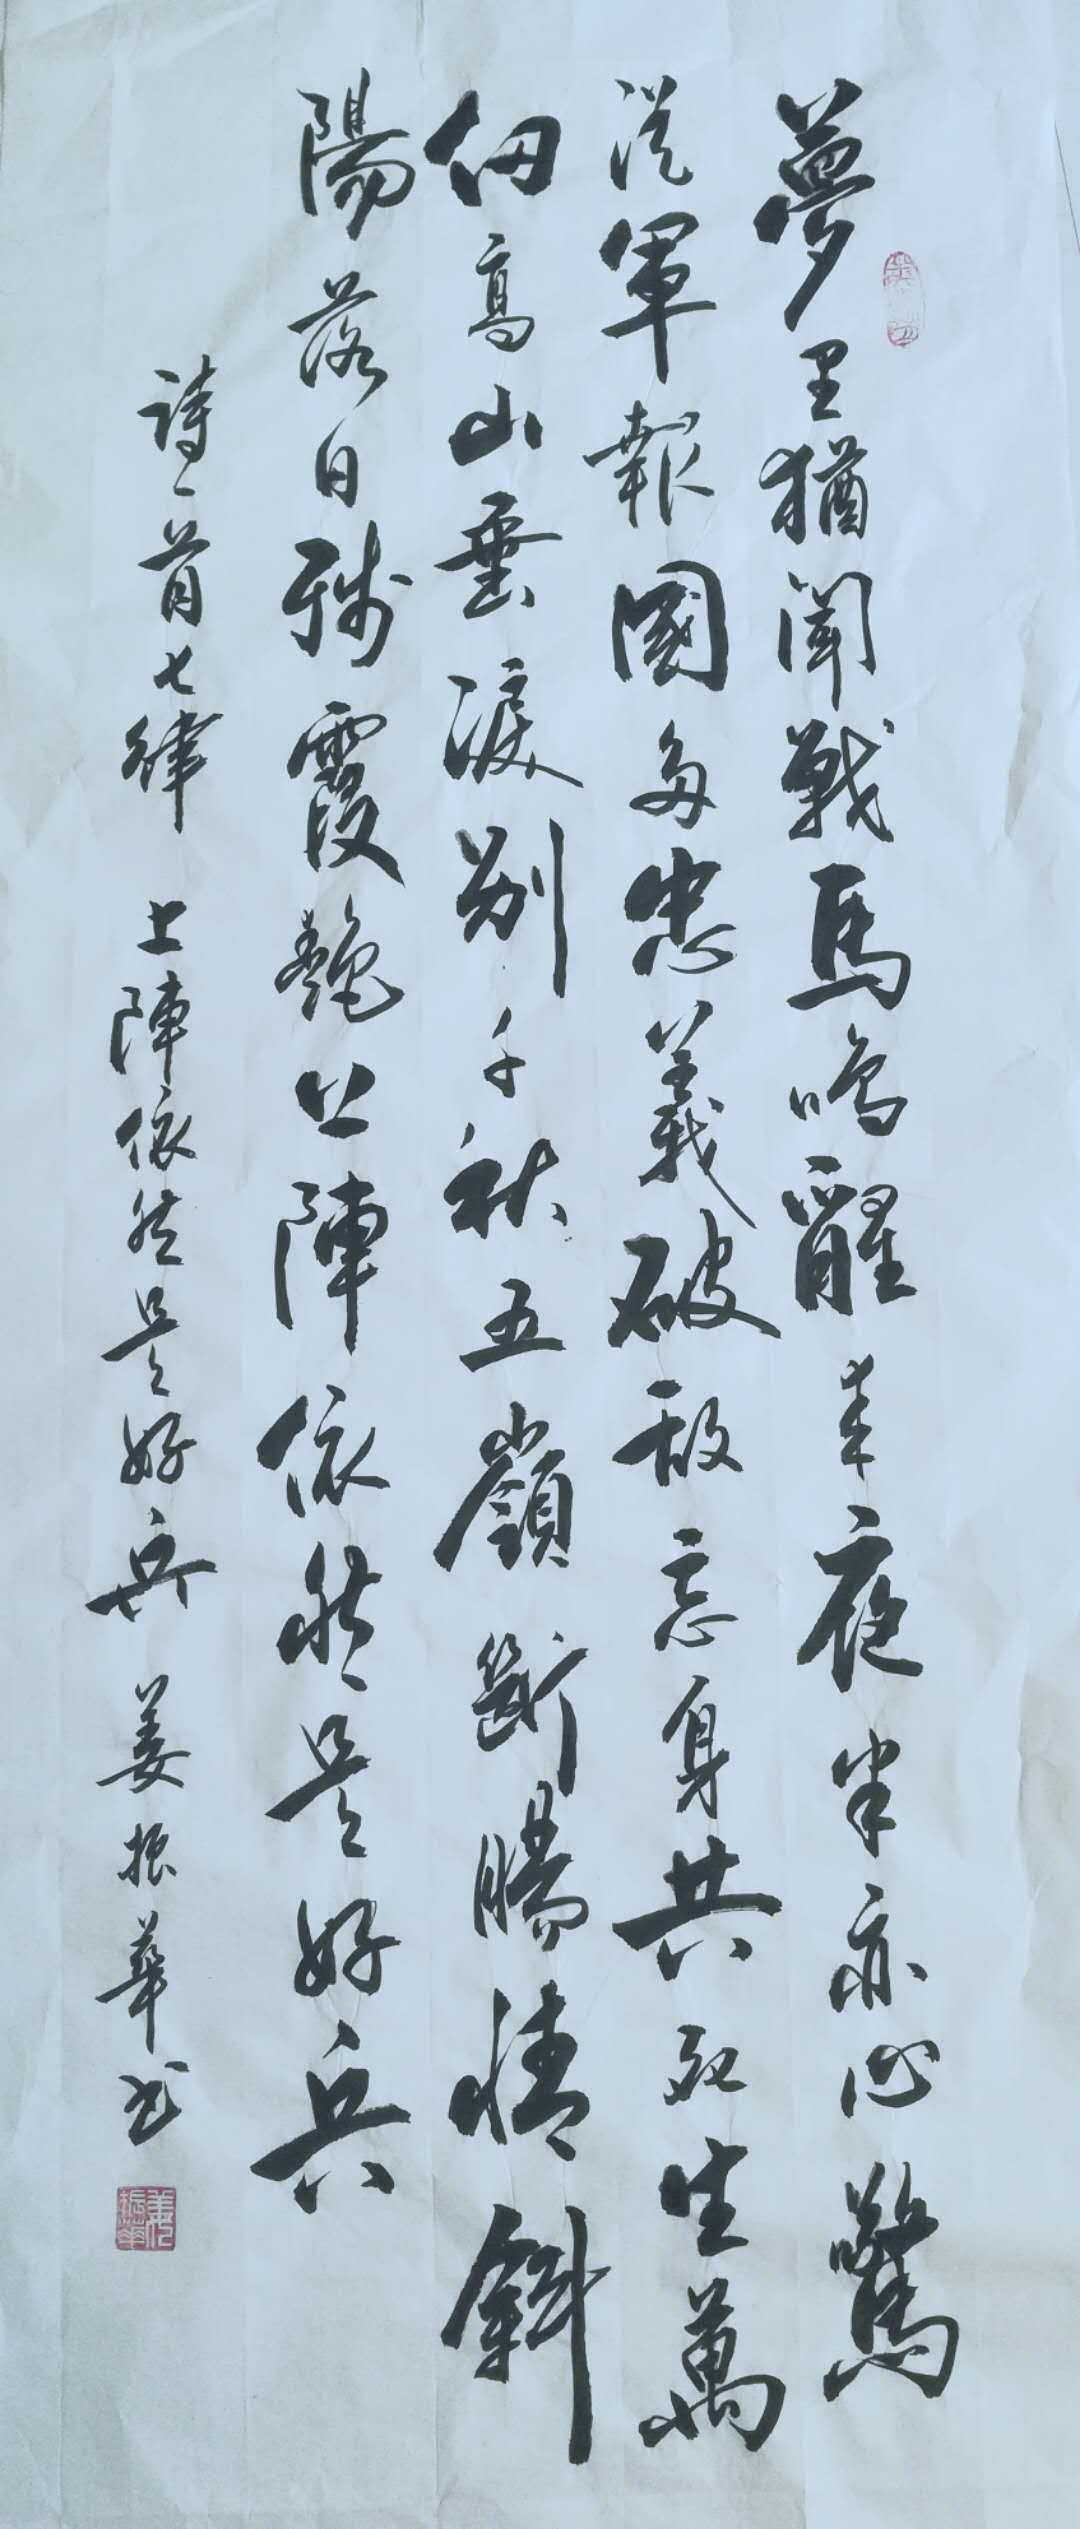 夢里猶聞戰馬鳴醒來夜半亦心驚
從軍報國多忠義破敵忘身共死生萬
仞高山垂淚别千秋五嶺斷腸情斜
陽落日殘霞艷上陣依然是好兵
詩一首七律 上陣依然是好兵 姜振華书
姜振華